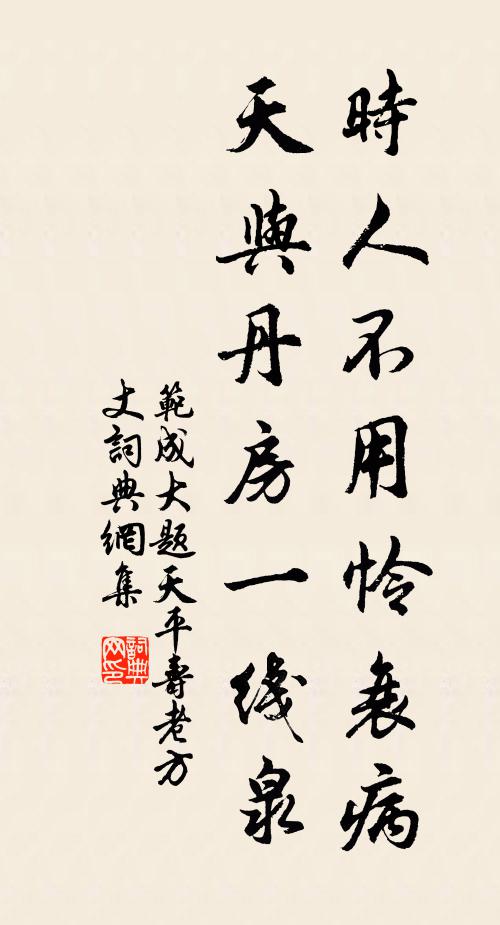 時人不用怜衰病
天與丹房一线泉
範成大题天平壽老方
丈詞典網集
詞典
网印